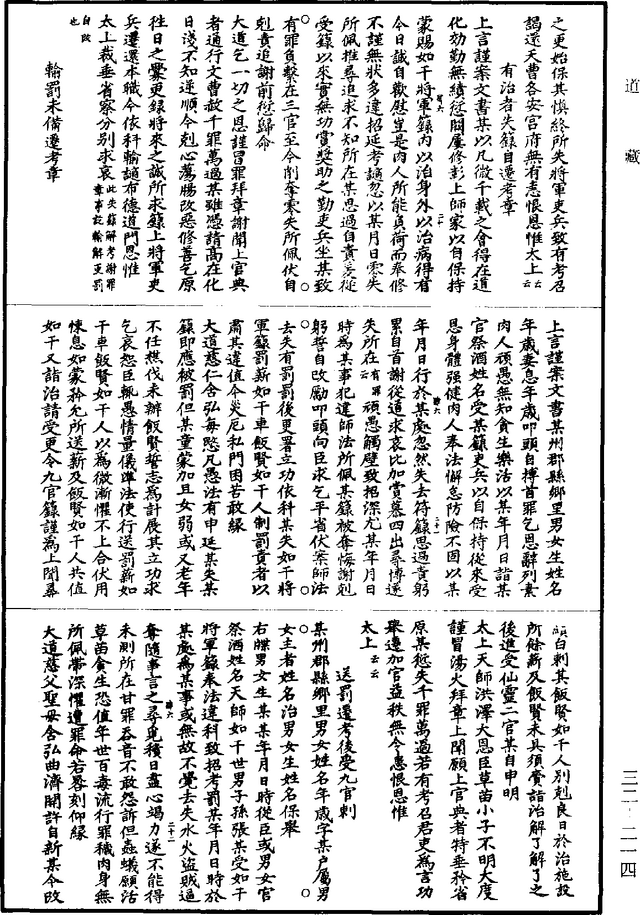 道藏
之更始保其慎終所失將軍吏兵致有考召
謁還天曹各安官府無有恚恨恩惟太上云云
有治者失籙自還考章
上言謹案文書某以凡微千載之會得在道
化効勤無績愆闕屢修彭上師家以自保持
蒙賜如干將軍籙內以治身外以治病得有
今日誠自歡慰豈是肉人所能負荷而奉修
不謹無狀多違招延考讁忽以某月日零失
所佩推尋追求不知所在某思過自責妄從
受籙以來實無功賞奬助之勤吏兵坐某致
有罪負繫在三官至今削奪零失所佩伏自
剋責追謝前愆歸命
大道乞一切之恩謹冒罪拜章謝聞上官典
者通行文曹赦千罪萬過某雖憑請高在化
日淺不知逆順今剋心蕩腸改惡修善乞原
往日之舋更錄將來之誠所求籙上將軍吏
兵還還本職令依科輸讁布德道門恩惟
太上裁垂省察分別求哀此失籙解考謝罪章事訖輸解更罰
自改也
輸罰未備遷考章
上言謹案文書某州郡縣鄉里男女生姓名
年歲妻息年歲叩頭自搏首罪乞恩辭列素
肉人頑愚無知貪生樂活以某年月日詣某
官祭酒姓名受某籙吏兵以自保持從來受
恩身體强健肉人奉法懈怠防險不固以某
年月日行於某處忽然失去符籙思過責躬
累自首謝從道求哀比加賞募四出尋博遂
失所在云有罪頑愚觸壁致招深尤某年月日
時為某事犯違師法所佩某籙被奪悔謝剋
躬誓自改勵叩頭向臣求乞平省伏案師法
去失有罰罰後更署立功依科某失如干將
軍籙罰薪如干車飯賢如干人制罰責者以
肅其違值今災厄私門困苦敢緣
大道慈仁含弘每愍凡愚法有申延某失某
籙即應被罰但某童蒙加且女弱或又老年
不任樵伐未辦飯賢誓志為計展其立功求
乞哀怨臣輒愚情量儀準法使行送罰薪如
干車飯賢如干人以為微漸懼不上合伏用
悚息如蒙矜允所送薪及飯賢如干人共值
如干又詣治請受更令九官錄謹為上聞募
縮白刺其飯賢如干人別剋良日於治施設
所餘薪及飯賢未具須賫詣治解了解了之
後進受仙靈二官某自申明
太上天師洪澤大恩臣草苗小子不明大度
謹冒湯火拜章上聞願上官典者特垂矜省
原某愆失千罪萬過若有考召君吏為言功
舉遷加官益秩無令恚恨恩惟
太上云云
送罰還考後受九官刺
某州郡縣鄉里男女姓名年歲字某戶屬男
女主者姓名治男女生姓名保舉
右牒男女生某某年月日時從臣或男女官
祭酒姓名天師如干世男子孫張某受如干
將軍籙奉法違科致招考罰某年月日時於
某處為某事或無故不覺去失水火盜賊過
奪隨事言之尋覓積日盡心竭力遂不能得
未測所在甘罪吞音不敢怨訴但螽蟻願活
草苗貪生恐值年世百毒流行罪穢肉身無
所佩帶深懼遭罪命若晷刻仰緣
大道慈父聖母含弘曲濟開許自新某今改
三二-二一四